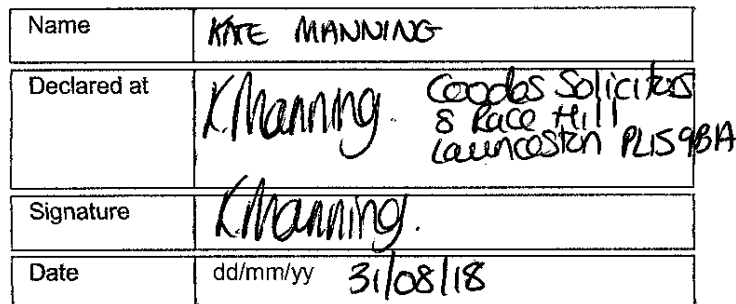 Name KATE MANNING
Declared at K Manning. Coodes Solicitors
8 Race Hill
Launceston PL15 9BA
Signature K Manning.
Date dd/mm/yy 31/08/18